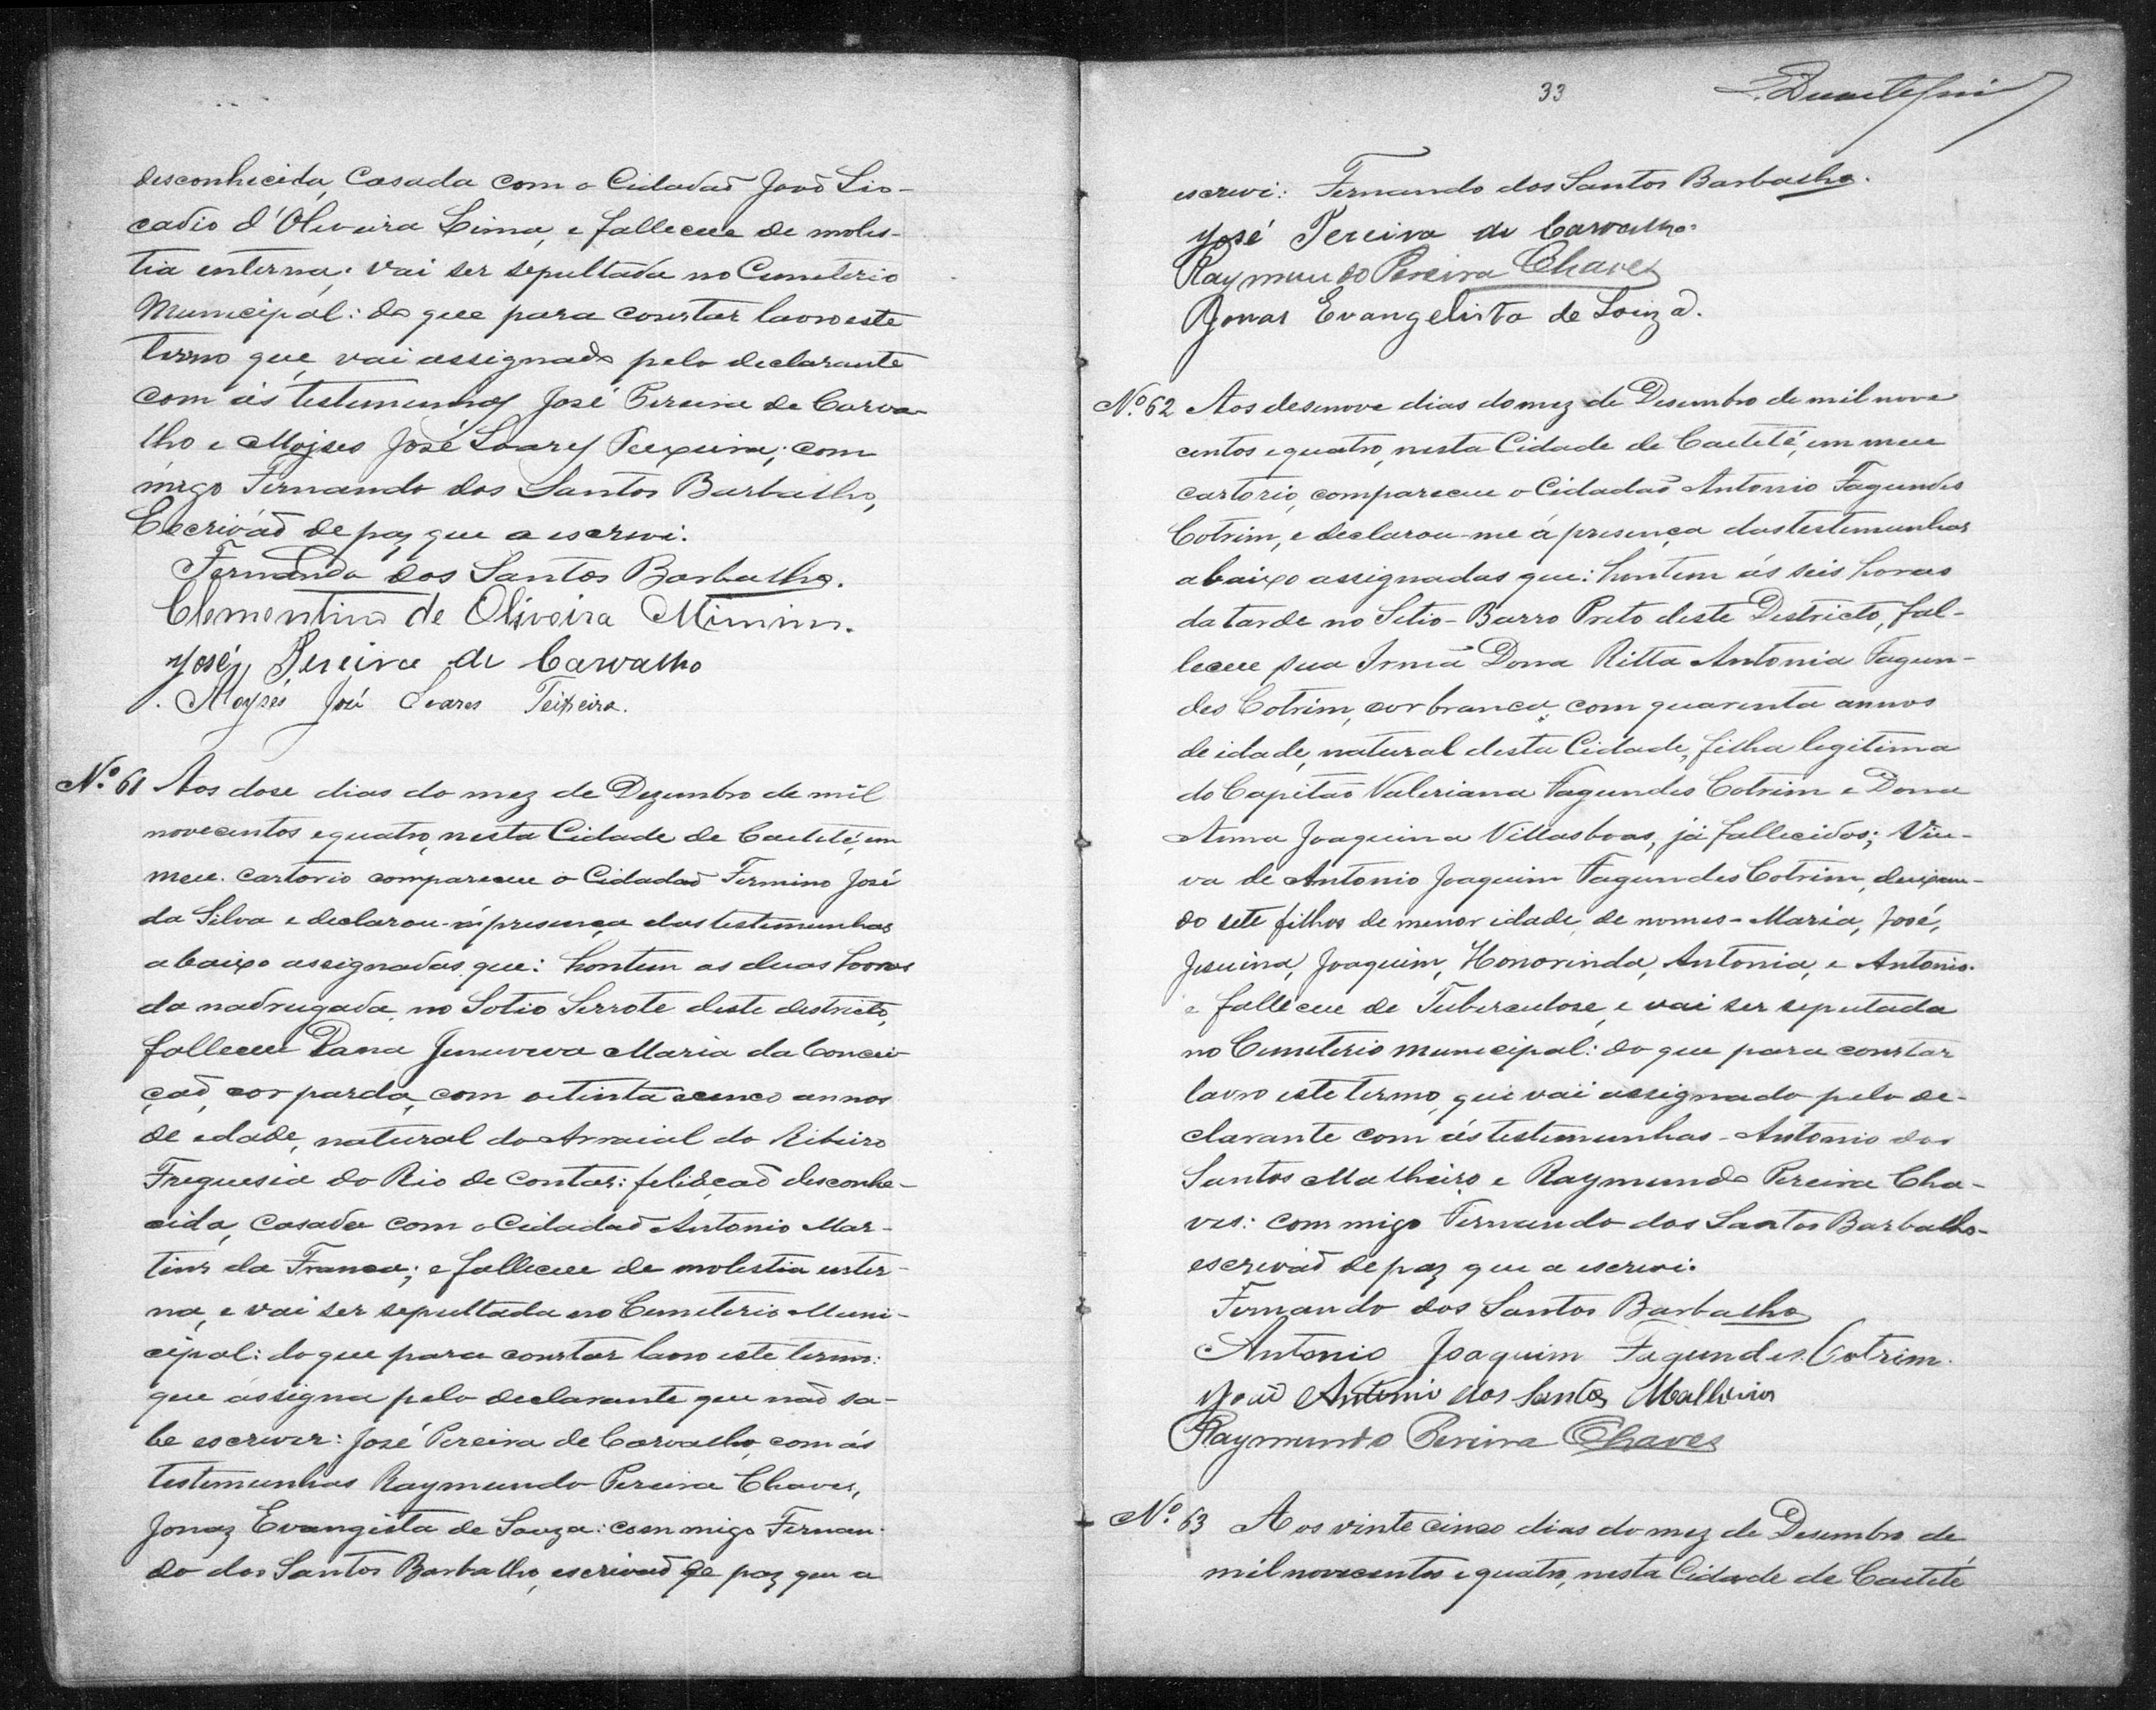 desconhecida, Casada com o Cidadaõ Joaõ Lio-
cadio d'Oliveira Lima, e falleceu de moles-
tia interna; vai ser sepultada no Cemeterio
Municipal: do que para constar lavro este
termo que vai assignado pelo declarante
com ás testemunhas José Pereira de Carva-
lho e Mojses José Soares Teixeira; com
migo Fernando dos Santos Barbalho,
Escrivaõ de paz que a escrevi.
Fernando dos Santos Barbalho.
Clementino de Oliveira
José Pereira de Carvalho
Moysés José Soares Teixeira.
Nº 61 Aos dose dias do mez de Dezembro de mil
novecentos e quatro, nesta Cidade de Caeteté, em
meu cartorio compareceu o Cidadaõ Firmino José
da Silva e declarou á presença das testemunhas
abaixo assignadas que: hontem as duas horas
da madrugada, no Sotio Serrote deste destricto,
falleceu Dana Jenuveva Maria da Concei-
çaõ, cor parda, com oitinta e cinco annos
de edade, natural do Arraial do Ribeiro
Freguesia do Rio de Contas: feliaçaõ desconhe-
cida, Casada com o Cidadaõ Antonio Mar-
tins da Franca; e falleceu de molestia enter-
na, e vai ser sepultada no Cemeterio Muni-
cipal: do que para constar lavro este termo:
que assigna pelo declarante que naõ sa-
be escrever: José Pereira de Carvalho, com ás
testemunhas Raymundo Pereira Chaves,
Jonaz Evangista de Souza: com migo Fernan-
do dos Santos Barbalho, escrivaõ de paz que a
33
escrevi: Fernando dos Santos Barbalho.
José Pereira de Carvalho.
Raymundo Pereira Chaves
Jonas Evangelista de Souza.
Nº 62 Aos desenove dias do mez de Desembro de mil nove
centos e quatro, nesta Cidade de Caeteté, em meu
cartorio, compareceu o Cidadaõ Antonio Fagundes
Cotrim, e declarou-me á presença das testemunhas
abaixo assignadas que: hontem ás seis horas
da tarde no Sitio-Barro Preto deste Destricto, fal-
leceu sua Irmã Dona Ritta Antonia Fagun-
des Cotrim, cor branca, com quarenta annos
de idade, natural desta Cidade, filha legitima
do Capitaõ Valeriana Fagundes Cotrim e Dona
Anna Joaquina Villasboas, já fallecidos; Viu-
va de Antonio Joaquim Fagundes Cotrim, deixan-
do sete filhos de menor idade, de nomes-Maria, José,
Jesuina, Joaquim, Honorinda, Antonia, e Antonio.
e falleceu de Tuberculose, e vai ser seputada
no Cemeterio municipal: do que para constar
lavro este termo, que vai assignado pelo de-
clarante com ás testemunhas-Antonio dos
Santos Malheiro e Raymundo Pereira Cha-
ves: com migo Fernando dos Santos Barbalho-
escrivaõ de paz que a escrevi.
Fernando dos Santos Barbalho
Antonio Joaquim Fagundes Cotrim.
Joaõ Antonio dos Santos Malheiros
Raymundo Pereira Chaves
Nº 63 Aos vinte cinco dias do mez de Desembro de
mil novecentos e quatro, nesta Cidade de Caeteté